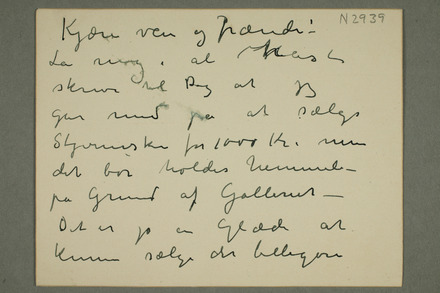 N2939
Kjære ven og Frænde!
La mig i al Hast
skrive til Dag at jeg
gar med på at sælge
for 1000 Kr. men
det bør holdes hemmel–
på Grund af Galleriet –
Det er jo en Glæde at
kunne sælge det billigere